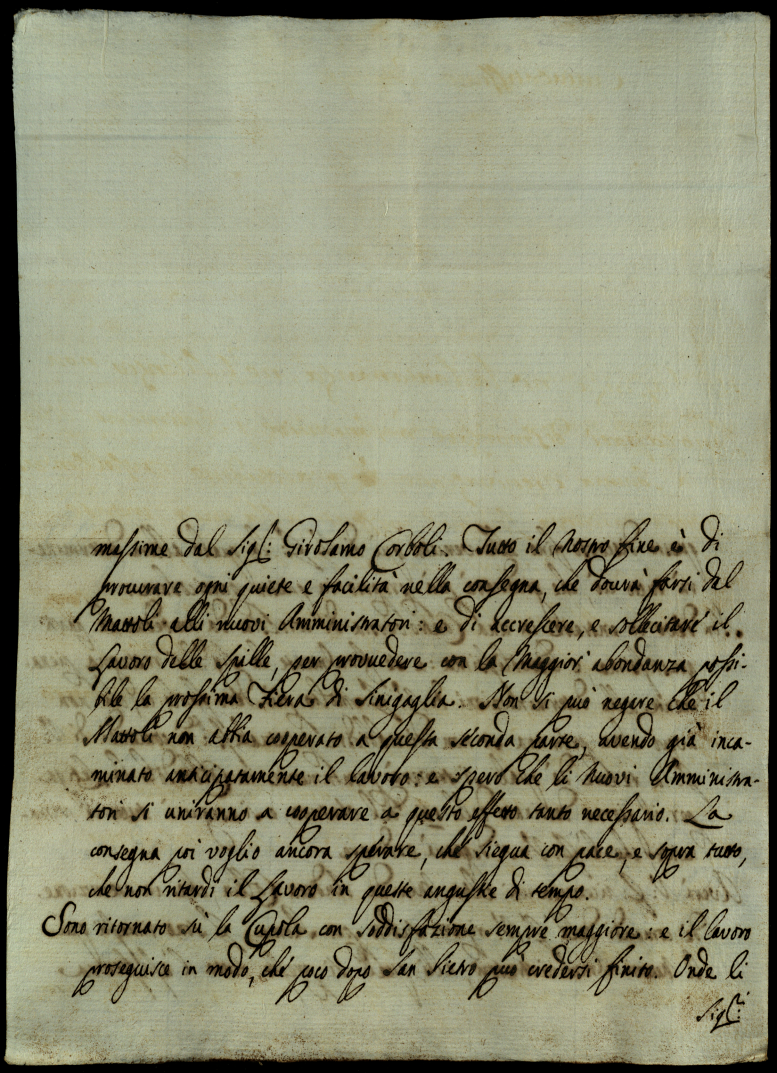 massime dal Sig.r: Girolamo Corboli. Tutto il nostro fine è di
procurare ogni quiete e facilità nella consegna, che dovrà farsi dal
Mattoli alli nuovi Amministratori: e di accrescere, e sollecitare il
Lavoro delle Spille, per provvedere con la maggior abondanza possi-
bile la prossima Fiera di Sinigaglia. Non si può negare che il
Mattoli non abbia cooperato a questa seconda parte, avendo già inca-
minato anticipatamente il lavoro: e spero che li nuovi Amministra-
tori si uniranno a cooperare a questo effetto tanto necessario. La
consegna poi voglio ancora sperare, che siegua con pace, e sopra tutto,
che non ritardi il Lavoro in queste angustie di tempo.
Sono ritornato sù la Cupola con soddisfazione sempre maggiore: e il lavoro
proseguisce in modo, che poco dopo San Pietro può credersi finito. Onde li
Sig.ri: